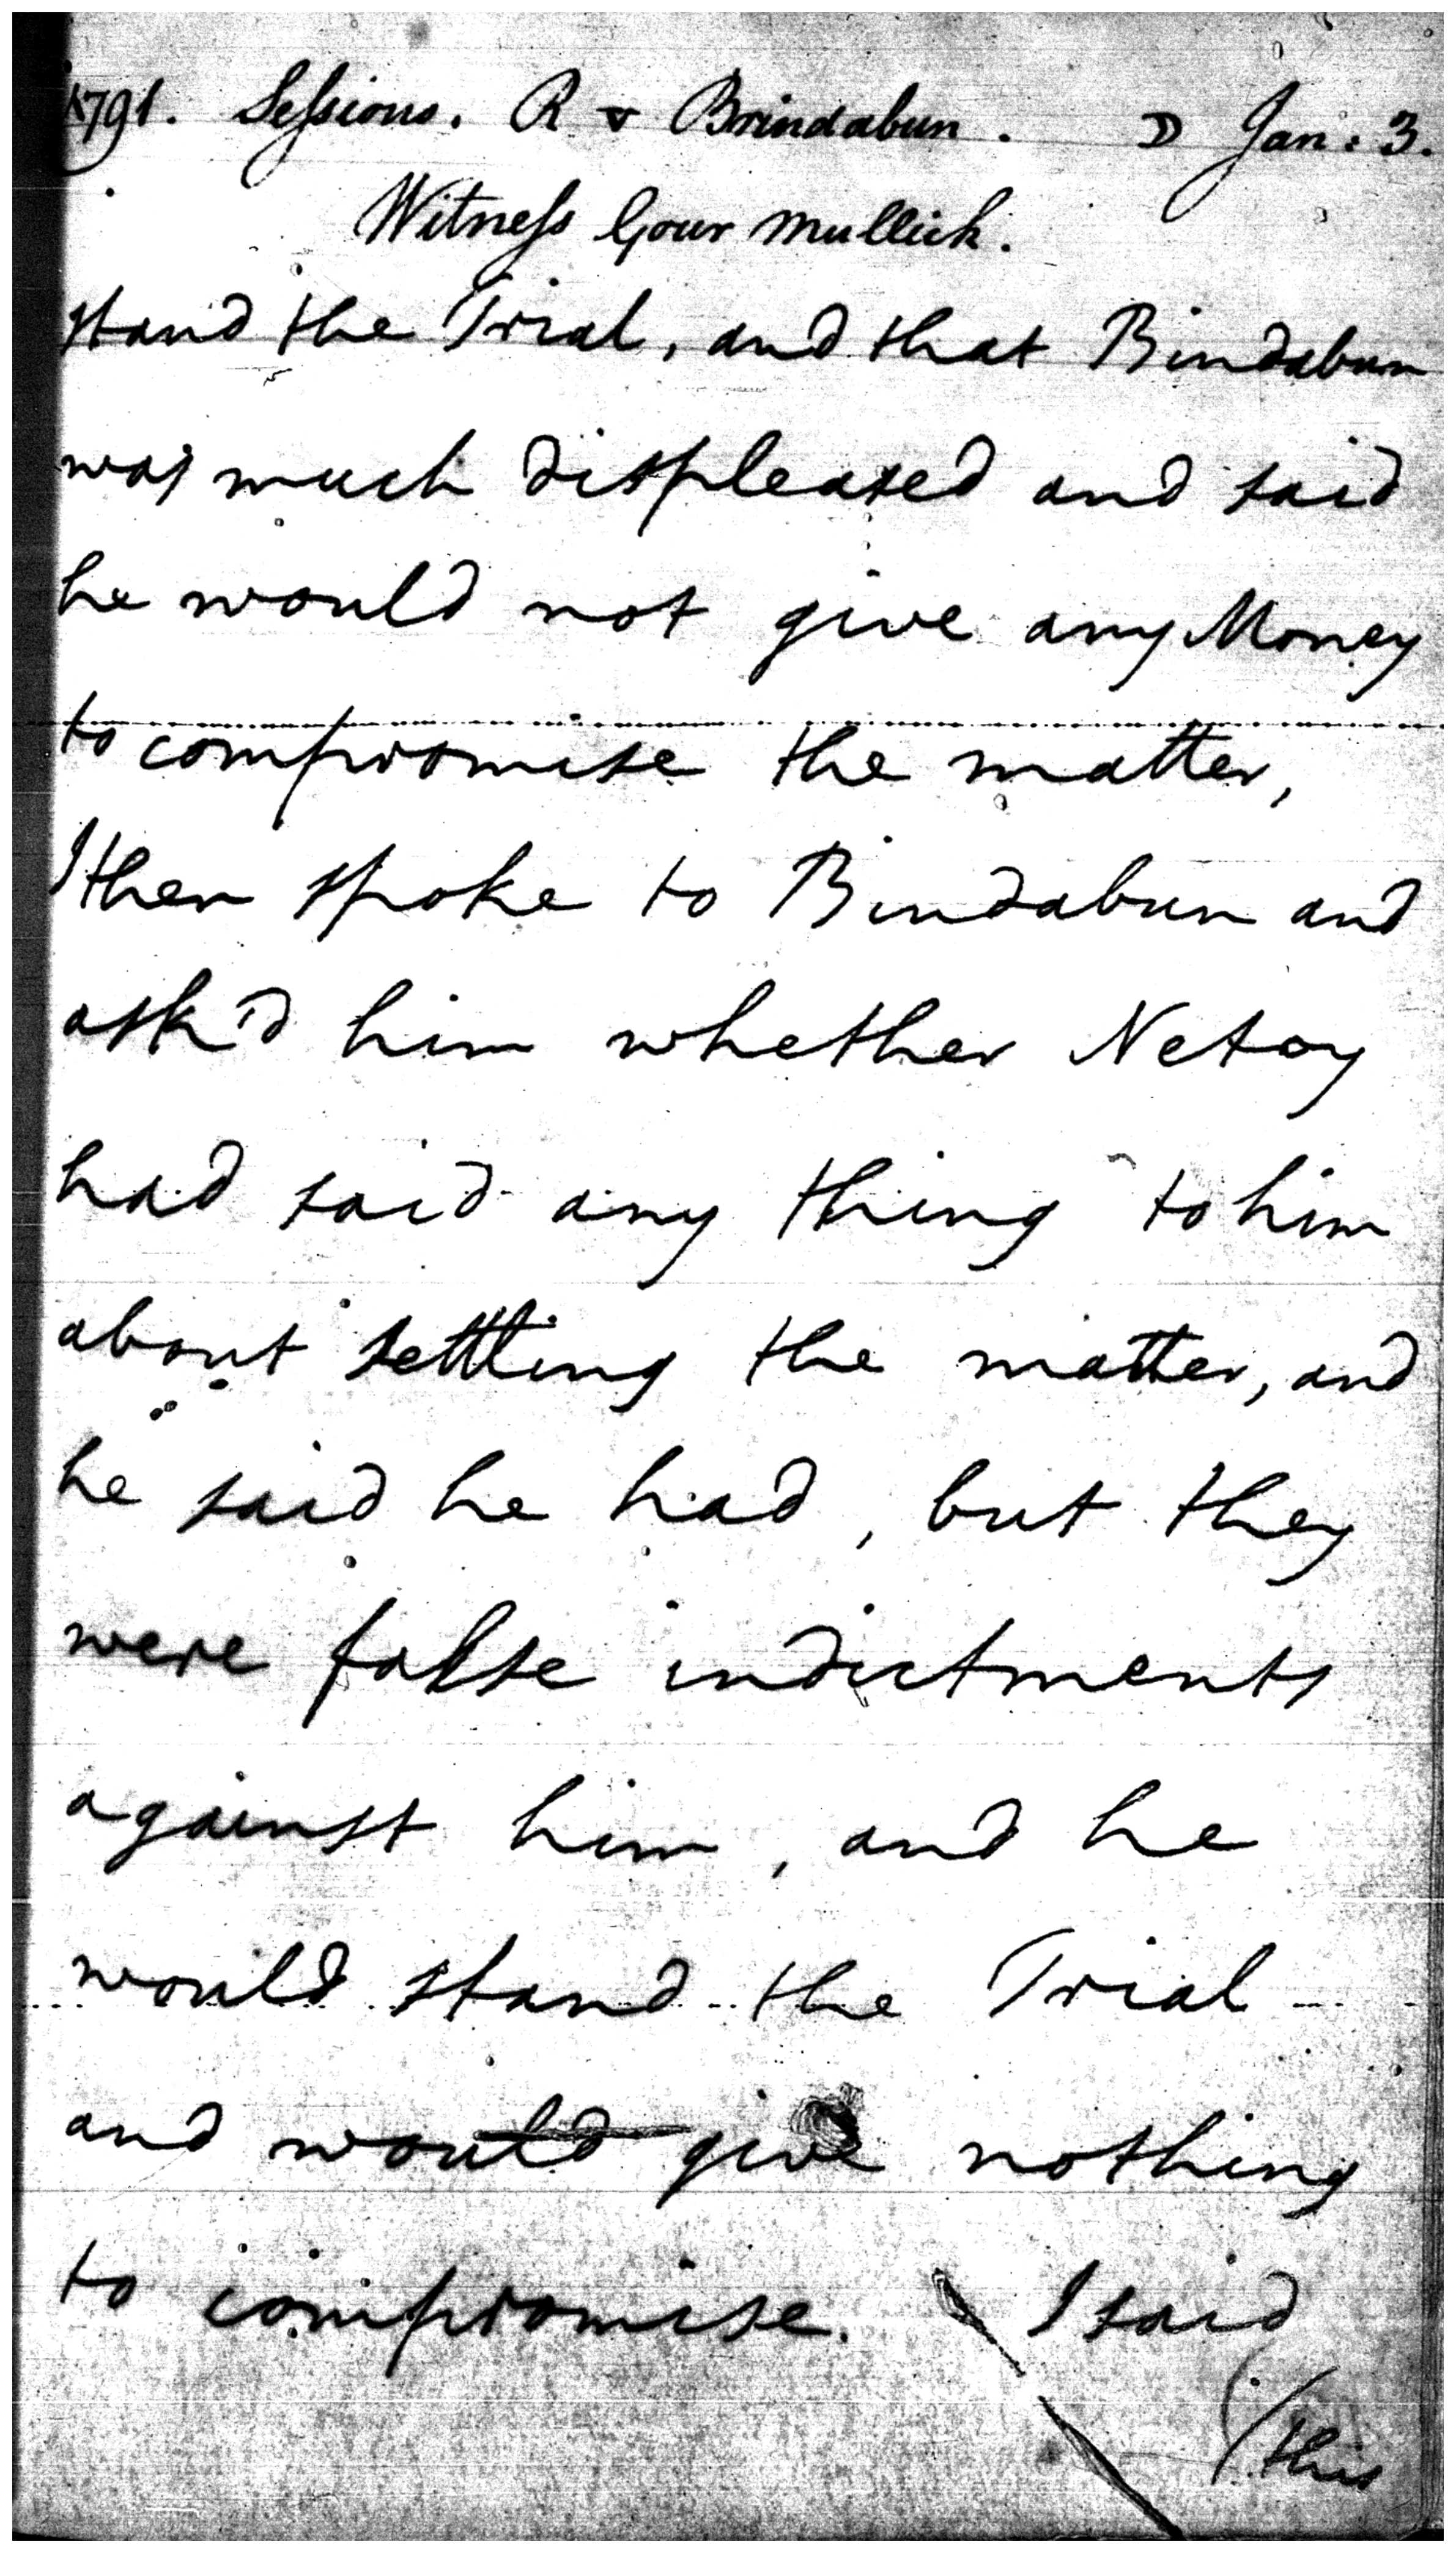 1791. Sessions. R v Brindabun. ☽ Jan: 3.
Witness Gour Mullick.
stand the Trial, and that Bindabun
was much displeased and said
he would not give any Money
to compromise the matter,
I then spoke to Bindabun and
ask'd him whether Netoy
had said any thing to him
about settling the matter, and
he said he had, but they
were false indictments
against him, and he
would stand the Trial
and would give nothing
to compromise. I said
(this